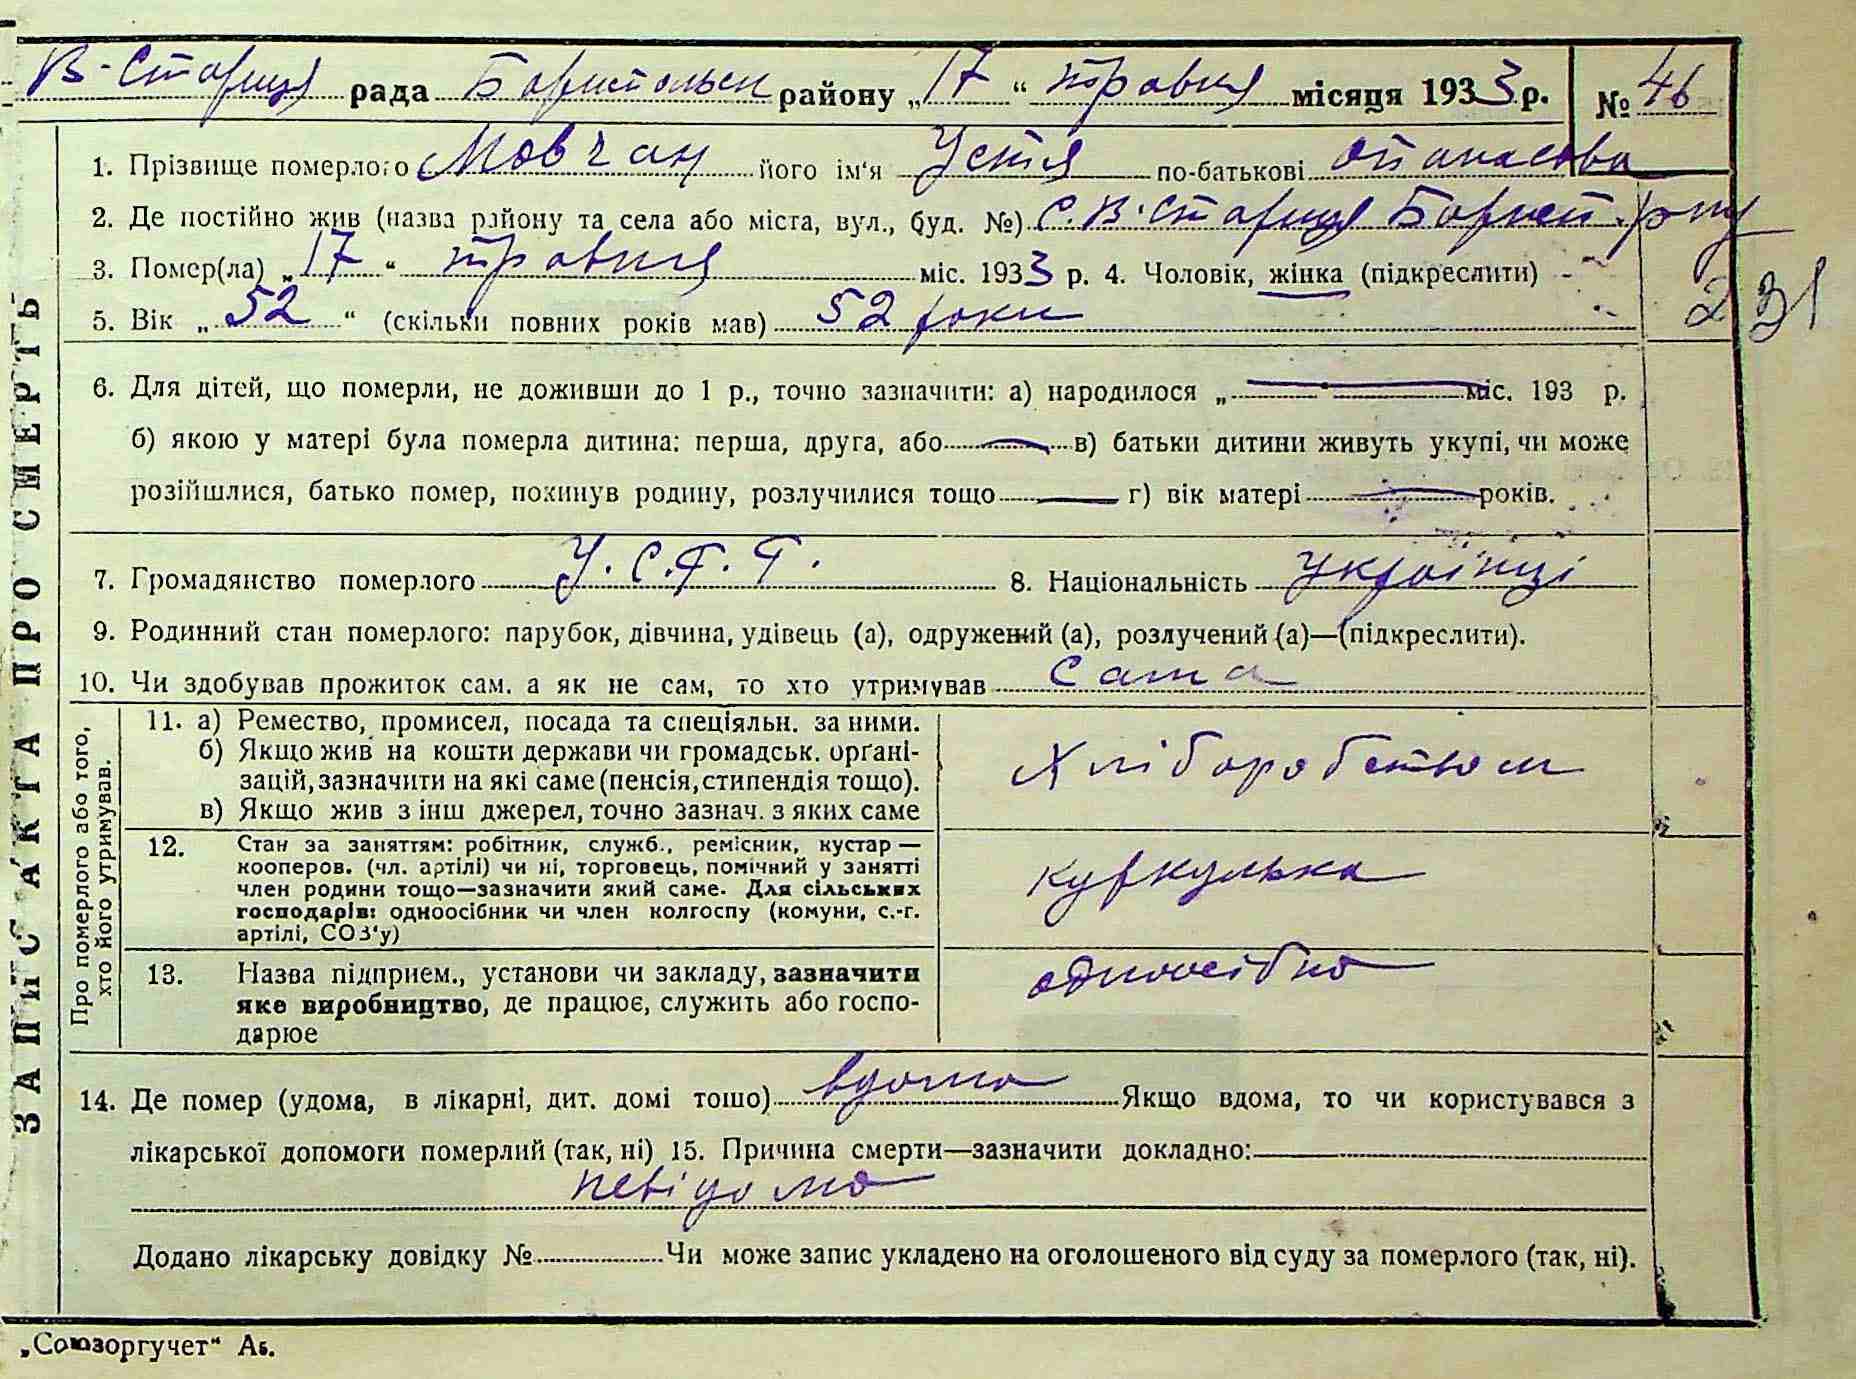 В-Стариця рада Бориспольськ району „17“ травня місяця 1933 р. № 46
1. Прізвище померлого Мовчан його ім'я Устя по-батькові опанасовa
2. Де постійно жив (назва району та села або міста, вул., буд. №) С. В-Стариця Борисп. р-ну
3. Помер(ла) „17“ травня міс. 1933 р. 4. Чоловік, жінка (підкреслити)
231
5. Вік „52“ (скільки повних років мав) 52 роки
6. Для дітей, що померли, не доживши до 1 р., точно зазначити: а) народилося „ міс. 193 р.
б) якою у матері була померла дитина: перша, друга, або в) батьки дитини живуть укупі, чи може
розійшлися, батько помер, покинув родину, розлучилися тощо г) вік матері років.
7. Громадянство померлого У.С.Р.Р. 8. Національність українці
9. Родинний стан померлого: парубок, дівчина, удівець (а), одружений (а), розлучений (а)—(підкреслити).
10. Чи здобував прожиток сам. а як не сам, то хто утримував сама
ЗАПИС АКТА ПРО СМЕРТЬ
Про померлого або того,
хто його утримував.
11. а) Ремество, промисел, посада та спеціяльн. за ними.
б) Якщо жив на кошти держави чи громадськ. орґані-
зацій, зазначити на які саме (пенсія, стипендія тощо).
в) Якщо жив з інш джерел, точно зазнач. з яких саме
Хліборобством
12. Стан за заняттям: робітник, служб., ремісник, кустар—
кооперов. (чл. артілі) чи ні, торговець, помічний у занятті
член родини тощо—зазначити який саме. Для сільських
господарів: одноосібник чи член колгоспу (комуни, с.-г.
артілі, СОЗ'у)
куркулька
13. Назва підприєм., установи чи закладу, зазначити
яке виробництво, де працює, служить або госпо-
дарює
одноосібно
14. Де помер (удома, в лікарні, дит. домі тошо) вдома Якщо вдома, то чи користувався з
лікарської допомоги померлий (так, ні) 15. Причина смерти—зазначити докладно:
невідомо
Додано лікарську довідку № Чи може запис укладено на оголошеного від суду за померлого (так, ні).
„Союзоргучет“ Аб.